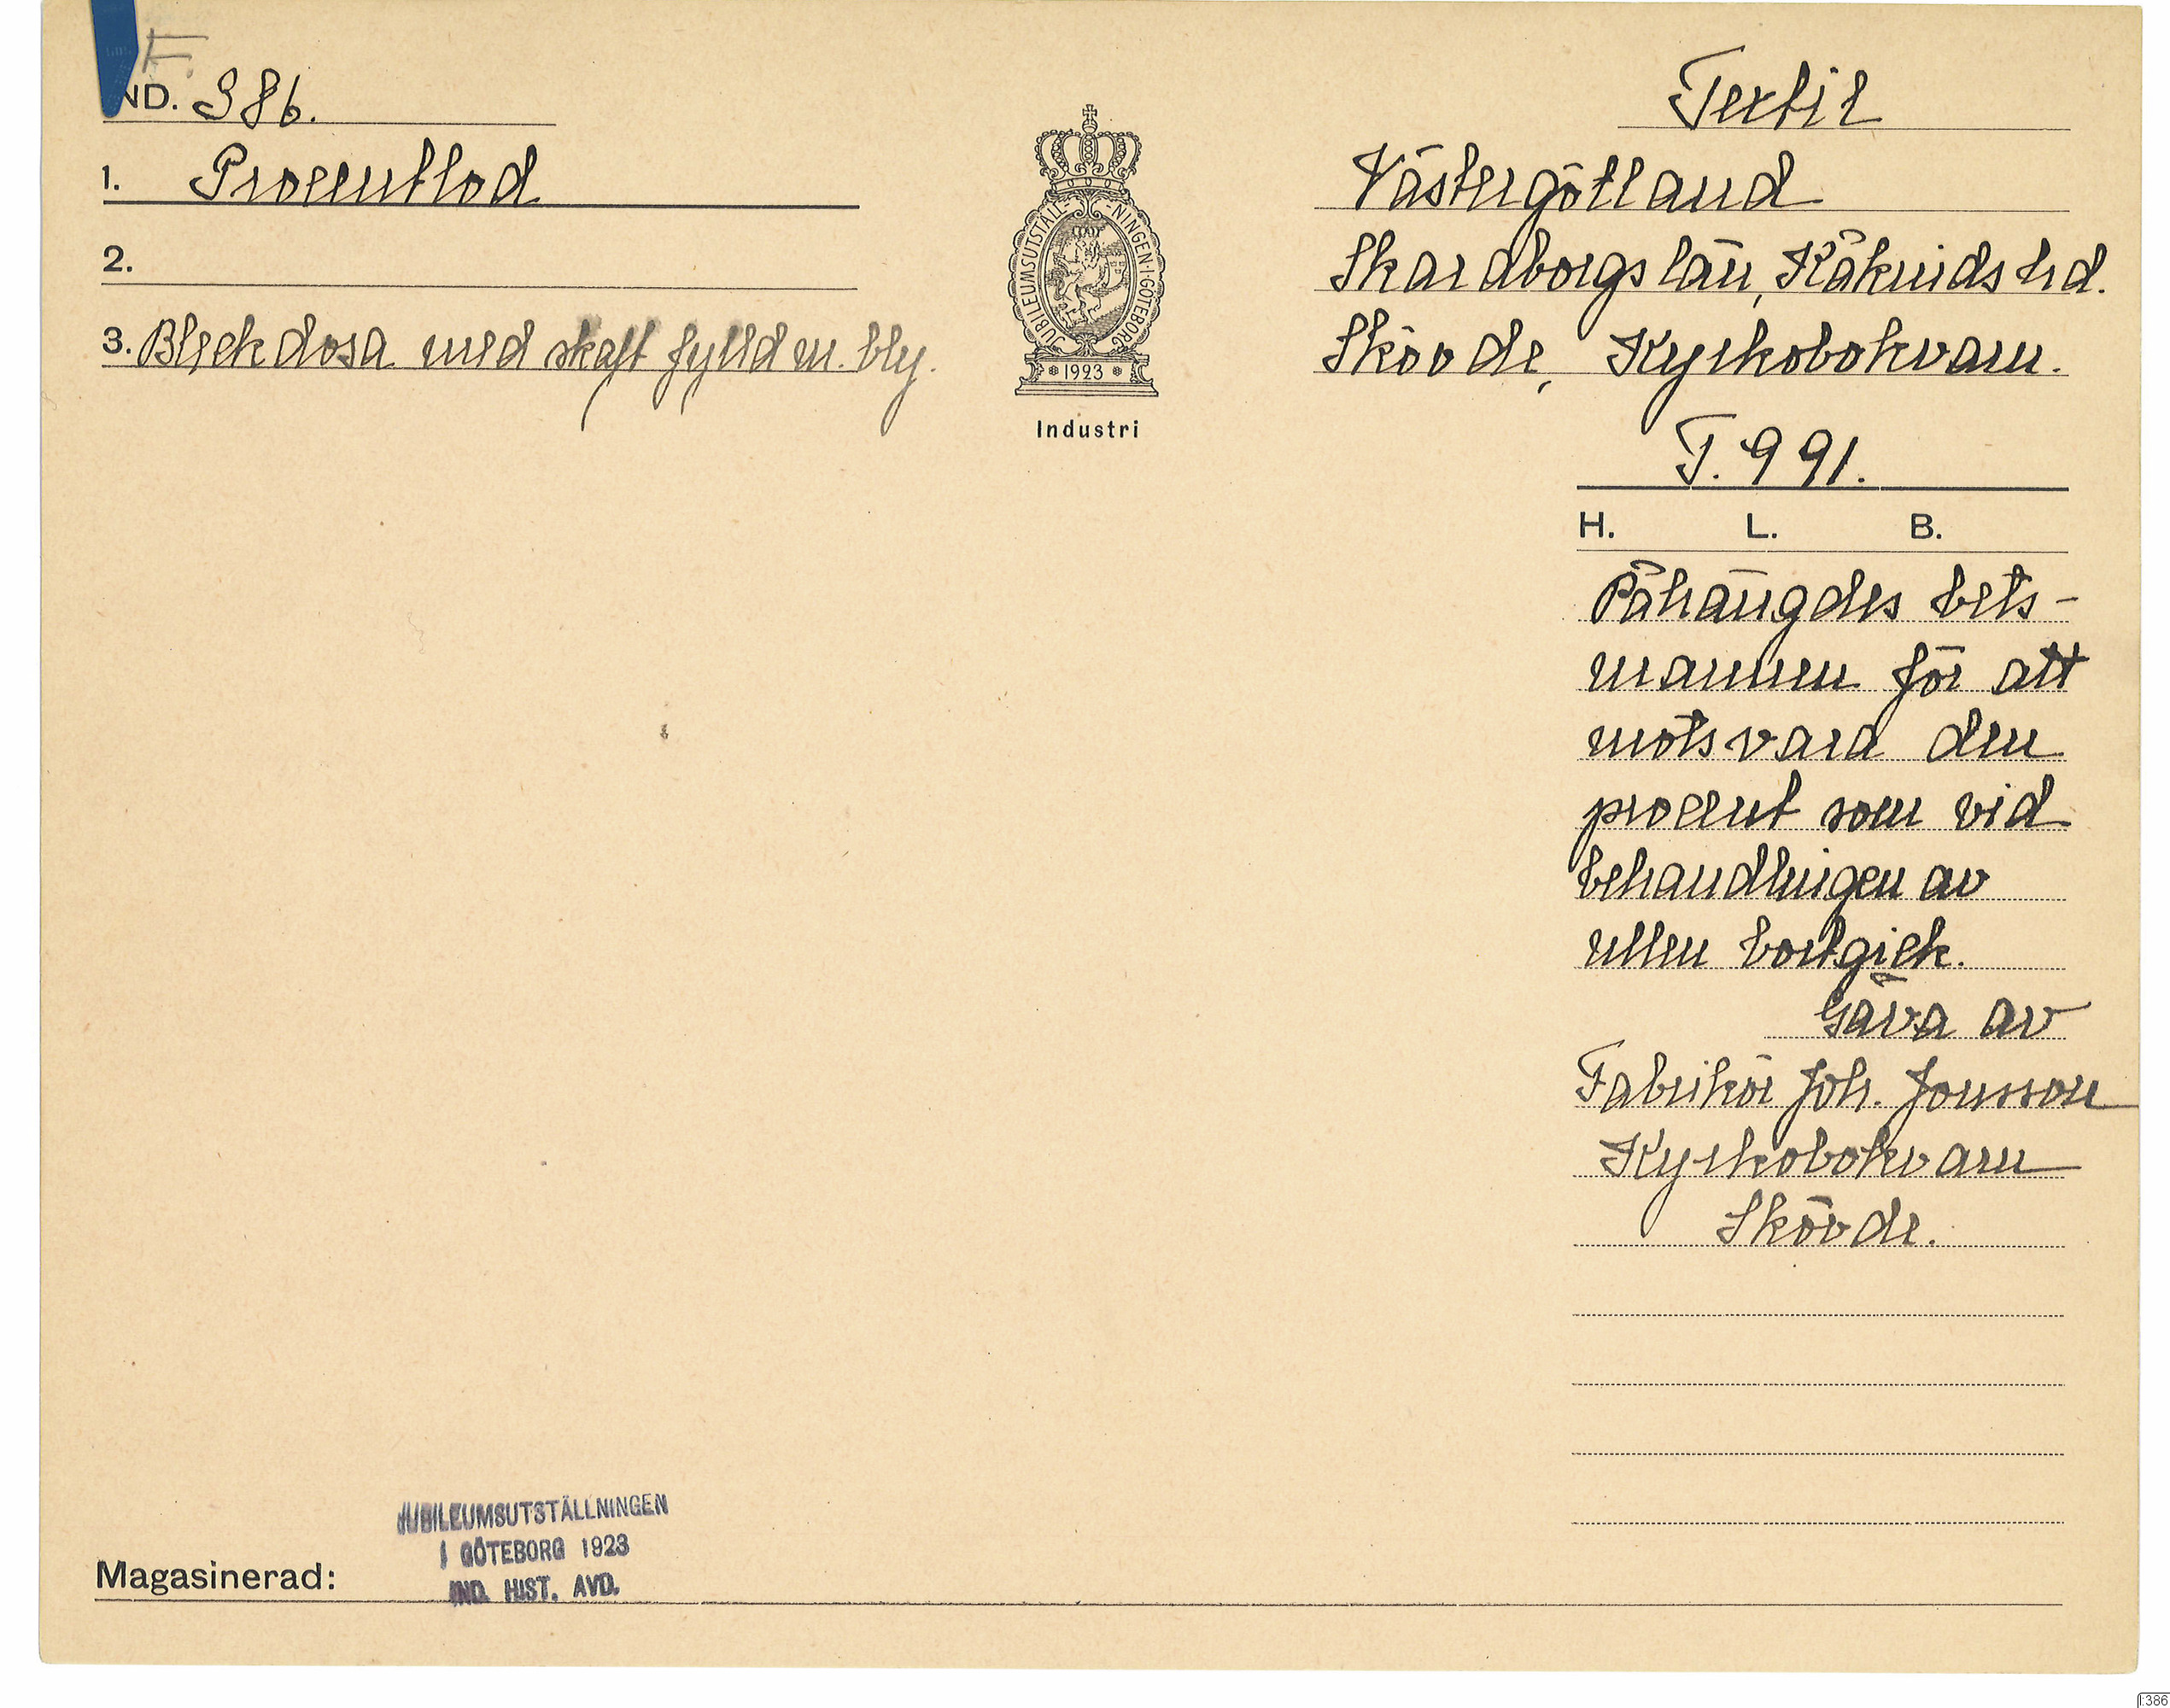 F.
IND. 386.
1. Procentlod
2.
3. Bleckdosa med skaft fylld m. bly.
JUBILEUMSUTSTÄLL-NINGEN·I·GÖTEBORG
* 1923 *
Industri
Textil
Västergötland
Skaraborgs län, Kåkinds hd.
Skövde, Kyrkobokvarn.
T. 991.
H. L. B.
Påhängdes bets-
mannen för att
motsvara den
procent som vid
behandlingen av
ullen bortgick.
Gåva av
Fabrikör Joh. Jonsson
Kyrkobokvarn
Skövde.
JUBILEUMSUTSTÄLLNINGEN
I GÖTEBORG 1923
IND. HIST. AVD.
Magasinerad:
I:386